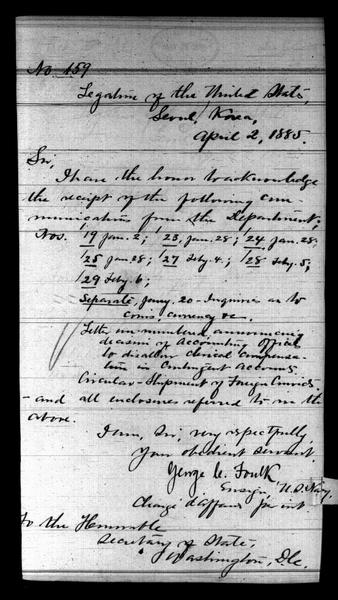 No. 159
Legation of the United States,
Seoul, Korea,
April 2, 1885.
Sir,
I have the honor to acknowledge
the receipt of the following com-
munications from the Department;
Nos. 19 Jan. 2; 23, Jan. 28; 24 Jan. 28;
25 Jan. 28; 27 Feby. 4.; 28 Feby. 5;
29 Feby. 6;
Separate, Jany. 20 - Inquiries as to
coins, currency &c.
Letter un-numbered, announcing
decision of Accounting Officer
to disallow clerical compensa-
tion in Contingent Accounts.
Circular - Shipment of Foreign Convicts,
- and all enclosures referred to in the
above.
I am, Sir, very respectfully,
Your obedient servant,
George C. Foulk
Ensign, U.S. Navy,
Charge d'affaires ad int.
To the Honorable
Secretary of State,
Washington, D.C.